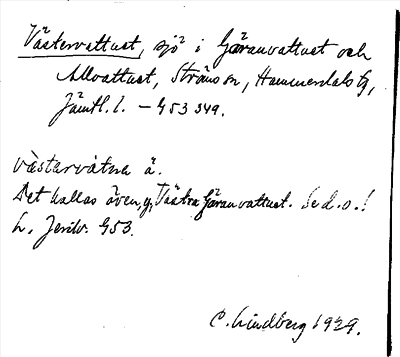 Västervattnet, sjö i Gåxsvattnet och
Allvattnet, Ströms sn, Hammerdals tg,
Jämtl. l. – 453 349.
västarvátna ä.
Det kallas även Västra vattnet. Se d.o.!
L. 453.
C. Lindberg 1929.